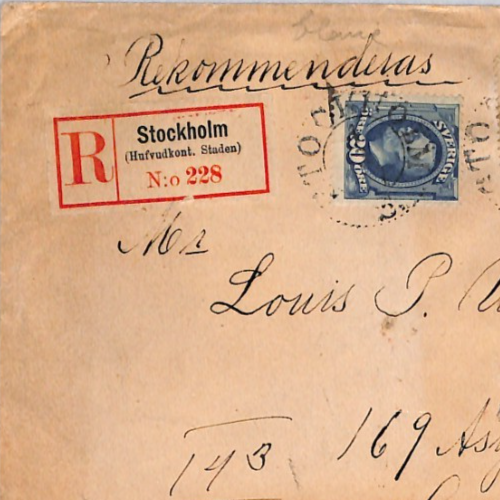 blanc
Rekommenderas
R
Stockholm
(Hufvudkont. Staden)
N:o 228
SVERIGE
20
ÖRE
Mr
Louis P.
143
169